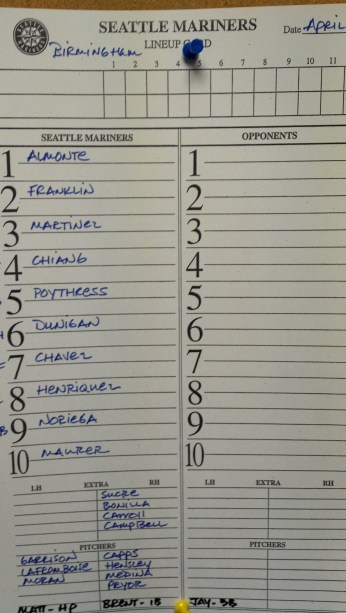 SEATTLE MARINERS
LINEUP CARD
Date APRIL
BIRMINGHAM
1 2 3 4 5 6 7 8 9 10 11
SEATTLE MARINERS OPPONENTS
1 ALMONTE 1
2 FRANKLIN 2
3 MARTINEZ 3
4 CHIANG 4
5 POYTHRESS 5
6 DUNIGAN 6
7 CHAVEZ 7
8 HENRIQUEZ 8
9 NORIEGA 9
10 MAURER 10
LH EXTRA RH LH EXTRA RH
SUCRE
BONILLA
CARROLL
CAMPBELL
PITCHERS PITCHERS
GARRISON CAPPS
LAFROMBOISE HENSLEY
MORAN MEDINA
PRYOR
MATT - HP BRENT - 1B JAY - 3B